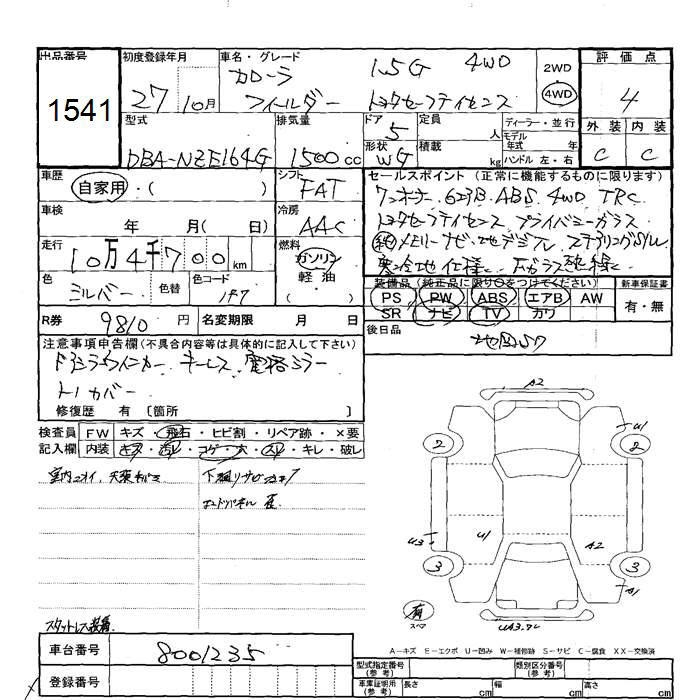 出品番号 初度登録年月 車名・グレード 評価点
1541 27 10月 カローラ フィールダー 1.5G 4WD トヨタセーフティセンス 2WD 4WD 4
型式 排気量 ドア 定員 ディーラー・並行 外装 内装
DBA-NZE164G 1500cc 5 人 モデル年式 年 C C
形状 WG 積載 kg ハンドル 左・右
車歴 自家用・( ) シフト FAT
セールスポイント (正常に機能するものに限ります)
ワンオーナー 623B ABS 4WD TRC
車検 年 月( 日) 冷房 AAC
トヨタセーフティセンス プライバシーガラス
走行 10万4千700km 燃料 ガソリン 軽油 ( ・ )
純メモリーナビ 地デジフル ステアリングSW
寒冷地仕様 Fガラス熱線
色 シルバー 色替 色コード 1F7
装備品(純正品に限り○をつけてください) 新車保証書
PS PW ABS エアB AW 有・無
SR ナビ TV カワ
R券 9810円 名変期限 月 日
後日品 地図SD
注意事項申告欄(不具合内容等は具体的に記入して下さい)
ドアミラーウインカー キーレス 電格ミラー
トノカバー
修復歴 有 〔箇所 〕
検査員 FW キズ・飛石・ヒビ割・リペア跡・×要
記入欄 内装 キズ・汚レ・コゲ・穴・スレ・キレ・破レ
室内ニオイ、
下廻リサビ
スタットレス装着
A2
U1
2 2
U3 U1 A2
3 3
A1
有 スペア
車台番号 8001235
登録番号
A-キズ E-エクボ U-凹み W-補修跡 S-サビ C-腐食 XX-交換済
型式指定番号(参考) 類別区分番号(参考)
車庫証明用(参考) 長さ cm 幅 cm 高さ cm